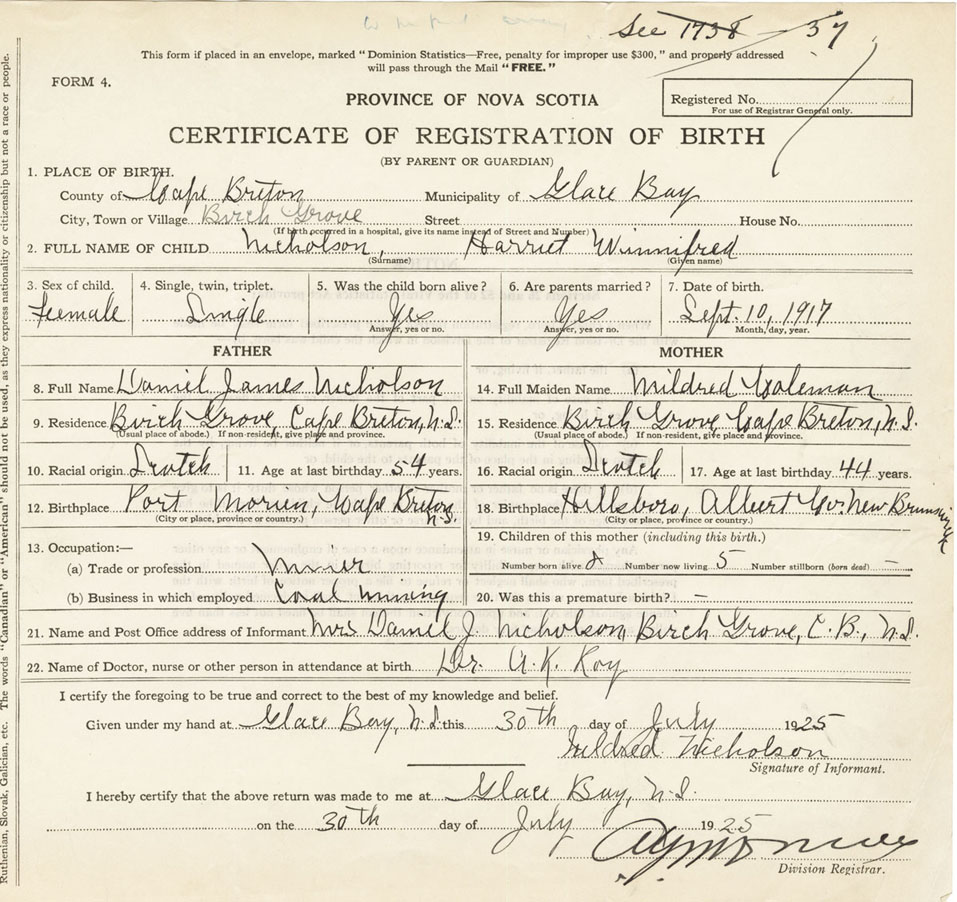 See 1738 37
This form if placed in an envelope, marked "Dominion Statistics—Free, penalty for improper use $300," and properly addressed
will pass through the Mail "FREE."
FORM 4.
PROVINCE OF NOVA SCOTIA
Registered No.
For use of Registrar General only.
CERTIFICATE OF REGISTRATION OF BIRTH
(BY PARENT OR GUARDIAN)
1. PLACE OF BIRTH.
County of Cape Breton Municipality of Glace Bay
City, Town or Village Birch Grove Street House No.
(If birth occurred in a hospital, give its name instead of Street and Number)
2. FULL NAME OF CHILD Nicholson, Harriet Winnifred
(Surname) (Given name)
3. Sex of child. 4. Single, twin, triplet. 5. Was the child born alive? 6. Are parents married? 7. Date of birth.
Feemale Single Yes Yes Sept. 10, 1917
Answer, yes or no. Answer, yes or no. Month, day, year.
FATHER MOTHER
8. Full Name Daniel James Nicholson 14. Full Maiden Name Mildred Coleman
9. Residence Birch Grove, Cape Breton, N.S. 15. Residence Birch Grove, Cape Breton, N.S.
(Usual place of abode.) If non-resident, give place and province. (Usual place of abode.) If non-resident, give place and province.
10. Racial origin Scotch 11. Age at last birthday 54 years. 16. Racial origin Scotch 17. Age at last birthday 44 years.
12. Birthplace Port Morien, Cape Breton, N.S. 18. Birthplace Hillsboro, Albert Co. New Brunswick
(City or place, province or country.) (City or place, province or country.)
13. Occupation:— 19. Children of this mother (including this birth.)
(a) Trade or profession Miner Number born alive Number now living 5 Number stillborn (born dead) —
(b) Business in which employed Coal mining 20. Was this a premature birth? —
21. Name and Post Office address of Informant Mrs Daniel J. Nicholson, Birch Grove, C.B., N.S.
22. Name of Doctor, nurse or other person in attendance at birth Dr. A.K. Roy
I certify the foregoing to be true and correct to the best of my knowledge and belief.
Given under my hand at Glace Bay, N.S. this 30th day of July 1925
Mildred Nicholson
Signature of Informant.
I hereby certify that the above return was made to me at Glace Bay, N.S.
on the 30th day of July 1925
Division Registrar.
Ruthenian, Slovak, Galician, etc. The words "Canadian" or "American" should not be used, as they express nationality or citizenship but not a race or people.